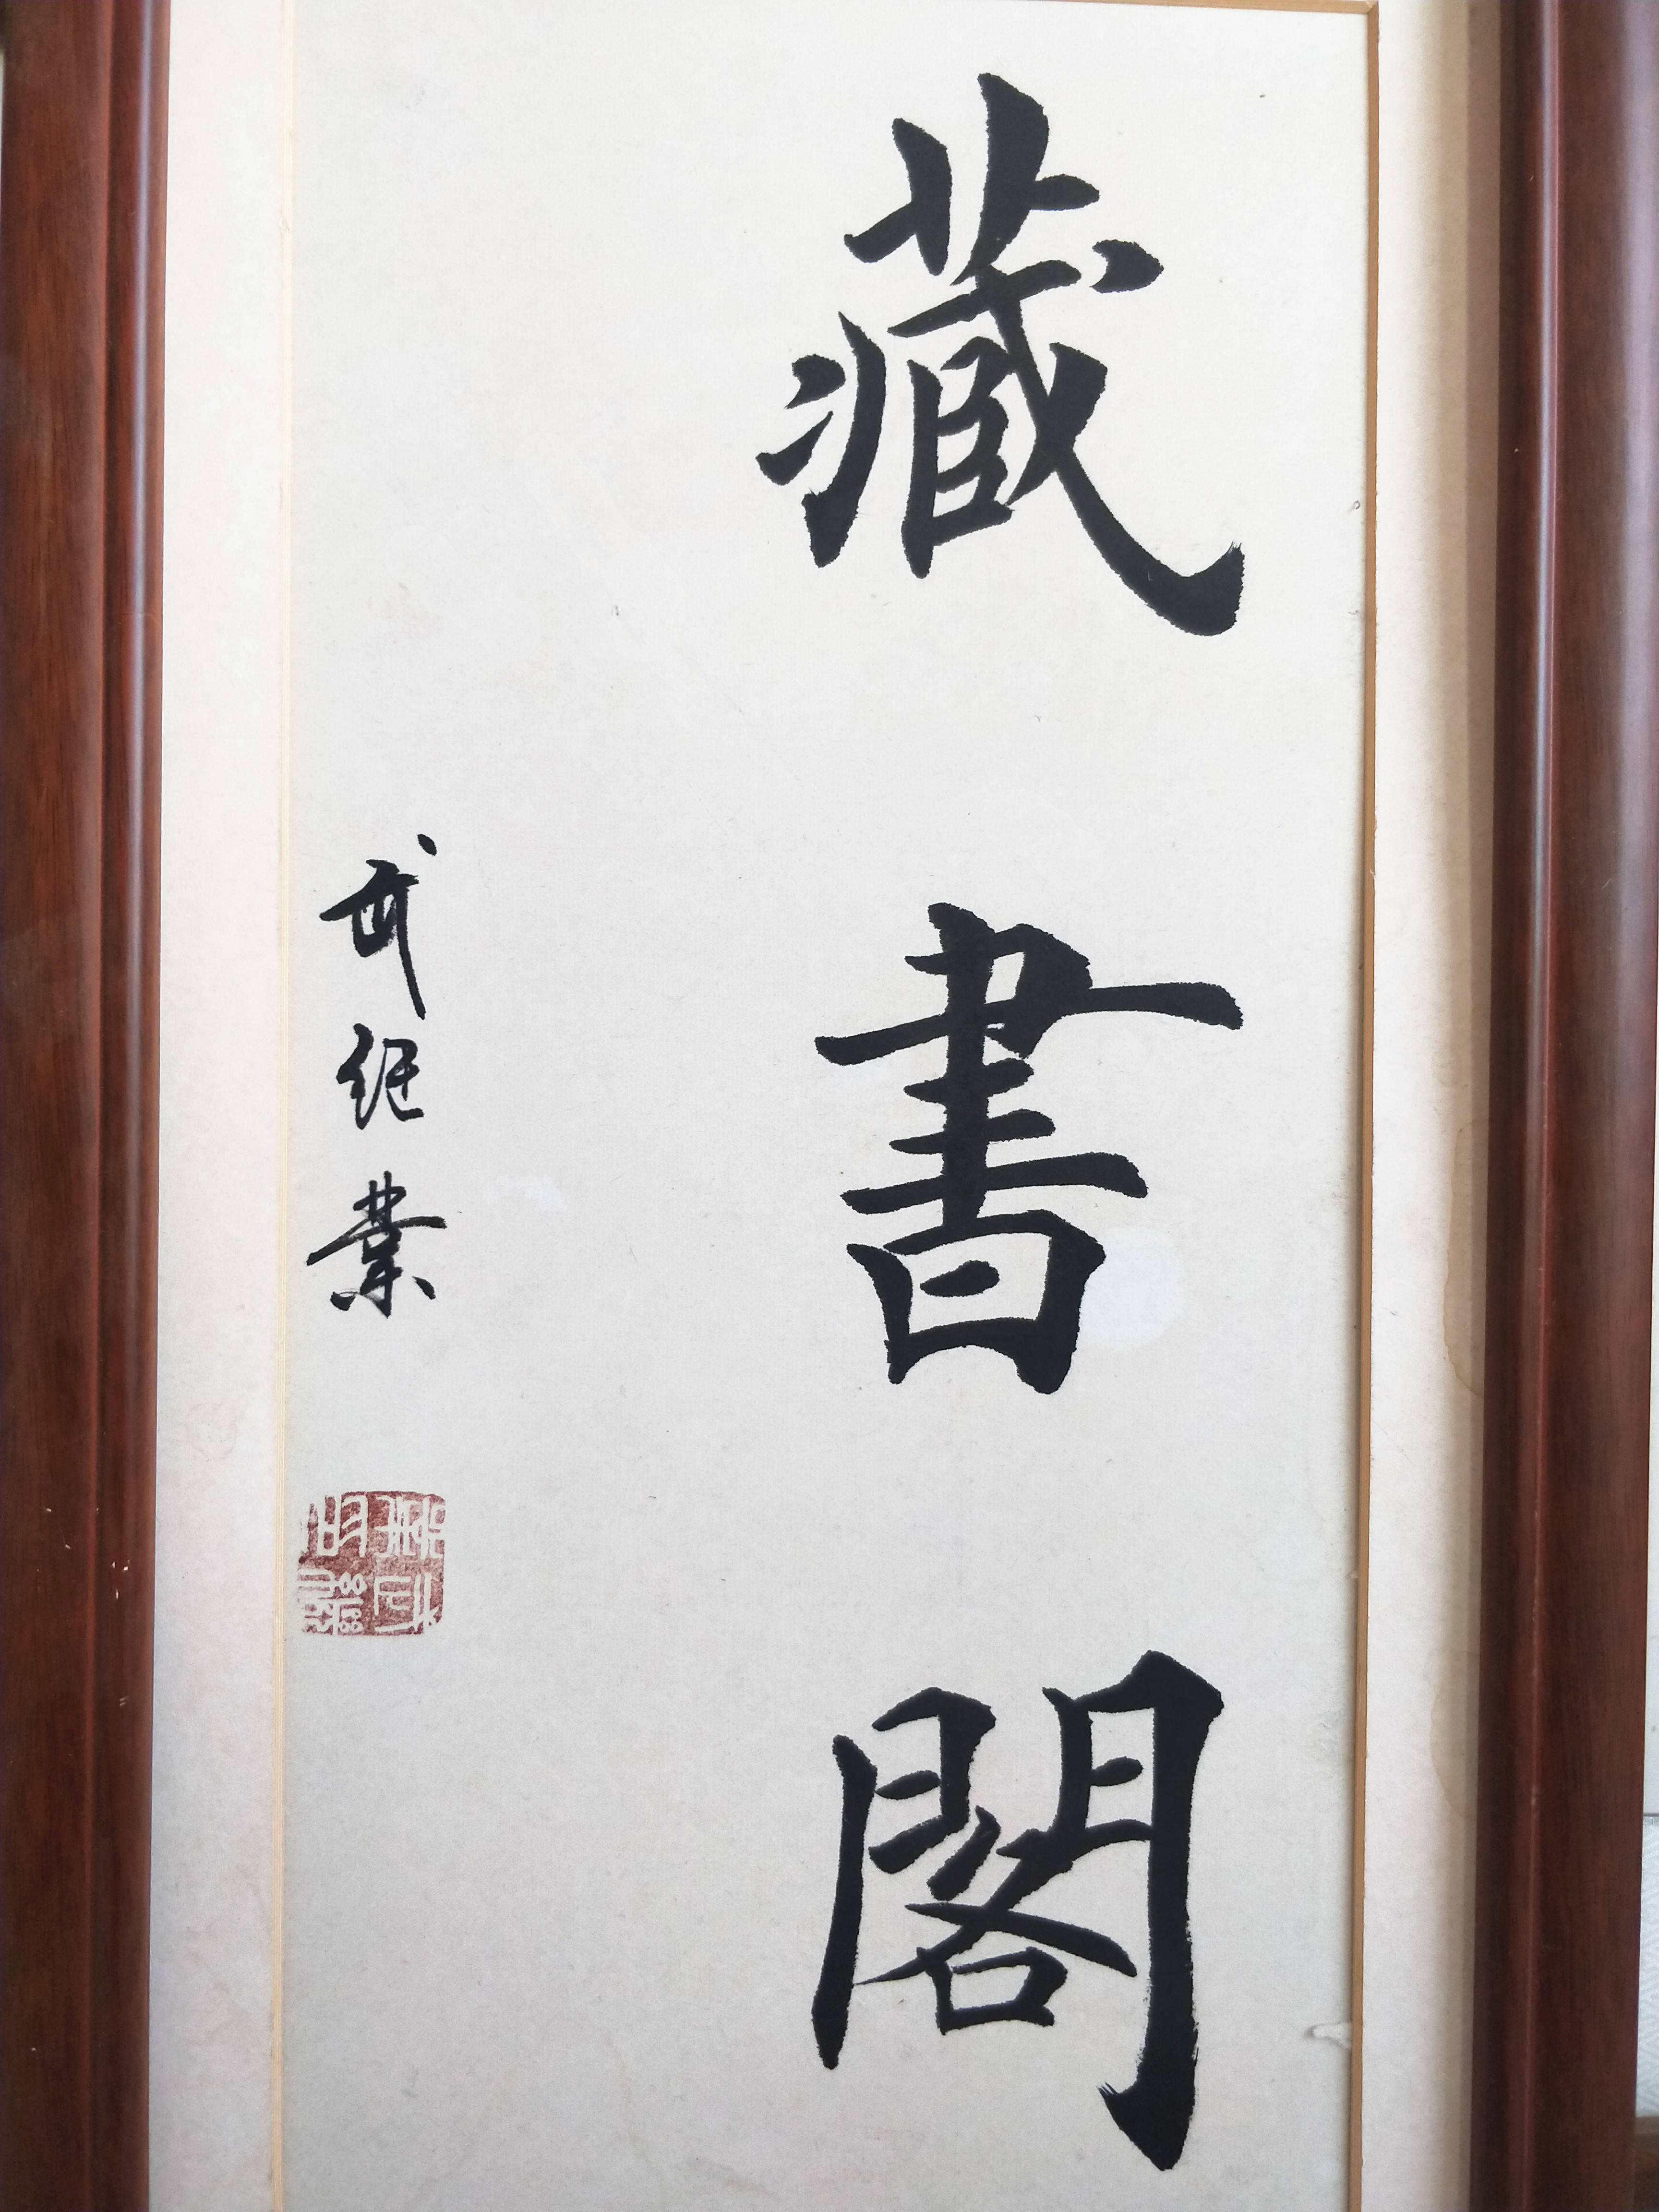 藏書閣
武經業